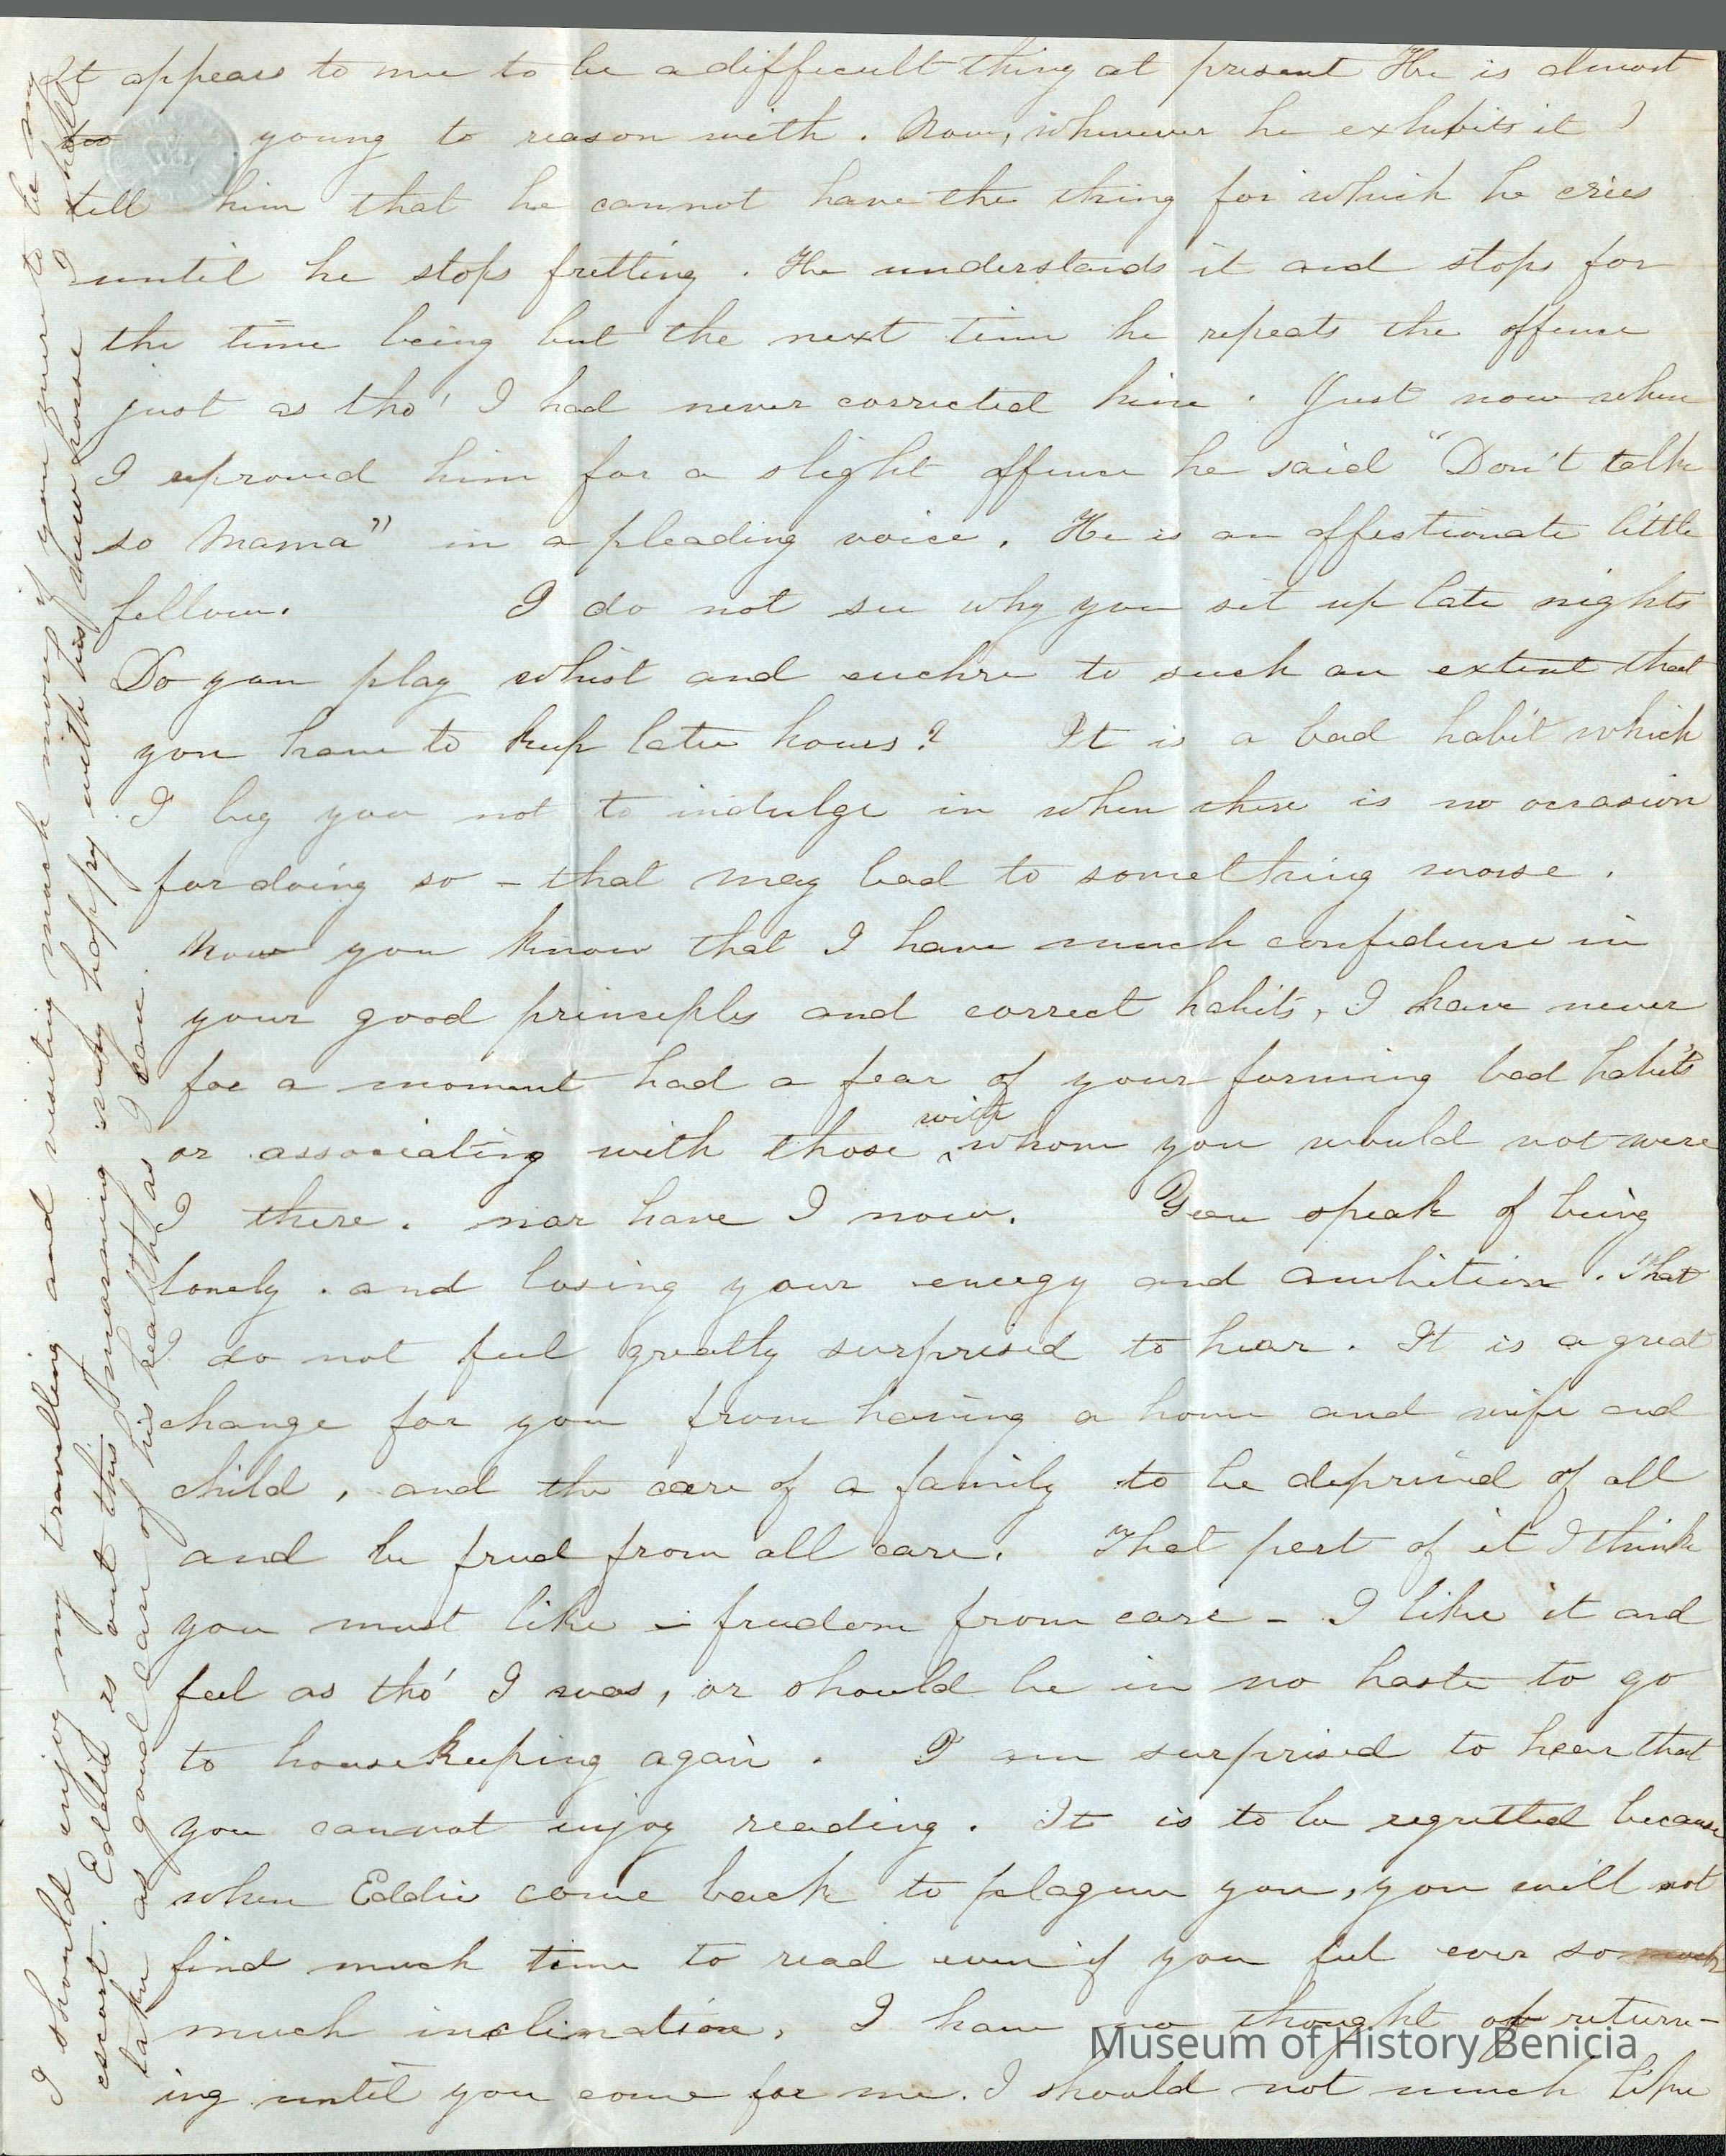 It appears to me to be a difficult thing at present He is almost
too young to reason with. Now, whenever he exhibits it I
tell him that he cannot have the thing for which he cries
until he stops fretting. He understands it and stops for
the time being but the next time he repeats the offense
just as tho' I had never corrected him. Just now when
I reproved him for a slight offense he said "Don't talk
so Mama" in a pleading voice. He is an affectionate little
fellow. I do not see why you sit up late nights
Do you play whist and euchre to such an extent that
you have to keep late hours? It is a bad habit which
I beg you not to indulge in when there is no occasion
for doing so – that may lead to something worse.
Now you know that I have much confidence in
your good principles and correct habits, I have never
for a moment had a fear of your forming bad habits
or associating with those with whom you would not were
I there. nor have I now. You speak of being
lonely. and losing your energy and ambition. That
I do not feel greatly surprised to hear. It is a great
change for you from having a home and wife and
child, and the care of a family to be deprived of all
and be freed from all care. That part of it I think
you must like – freedom from care – I like it and
feel as tho' I was, or should be in no haste to go
to housekeeping again. I am surprised to hear that
you cannot enjoy reading. It is to be regretted because
when Eddie come back to plague you, you will not
find much time to read even if you feel ever so much
much inclination. I have no thought of return-
ing until you come for me. I should not much like
I should enjoy my travelling and visiting much more if you were to be my
escort. Eddie is out this morning very happy with his
take as good care of his health as I can. I shall
Museum of History Benicia